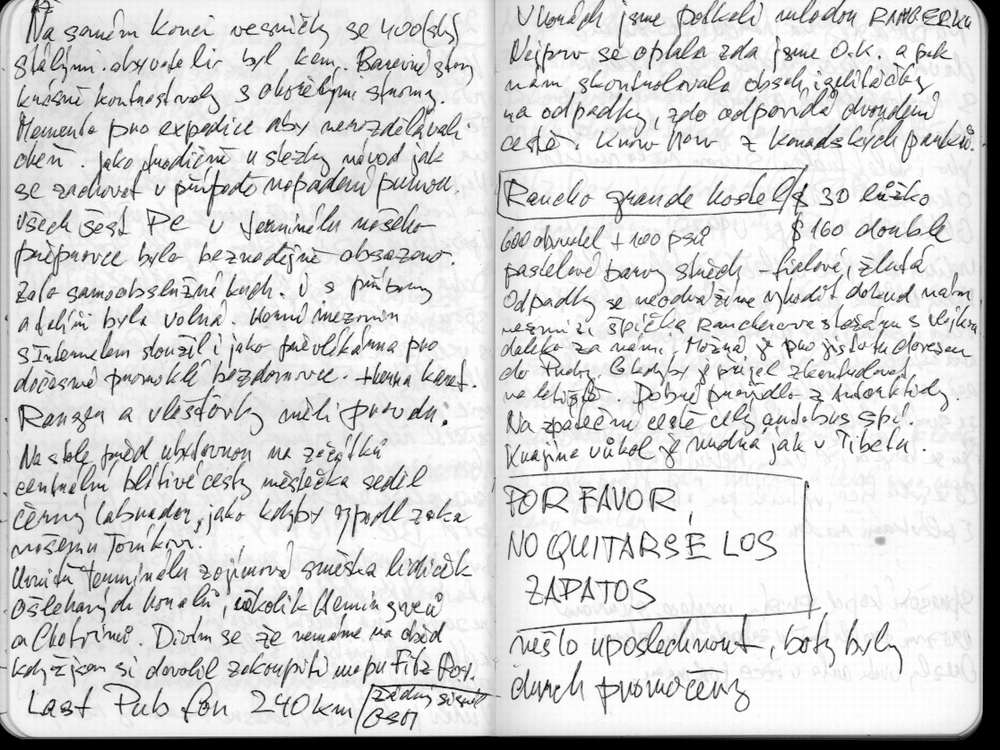 Na samém konci vesničky se 400 (sty)
stálými obyvateli byl kemp. Barevné stany
krásně kontrastovaly s okolními stromy.
Memento pro expedice aby nerozdělávali
oheň. jako tradičně u stezky návod jak
se zachovat v případě napadení pumou.
všech šest PC v terminálu našeho
přepravce bylo beznadějně obsazeno.
Zato samoobslužná kuch. s
a talíři byla volná. Horní mezonin
s Internetem sloužil i jako převlíkárna pro
dočasně promoklé bezdomovce. + herna karet.
Ranger a vlaštovky měli pravdu.
Na stole před ubytovnou na začátku
centrální blátivé cesty městečka seděl
černý labrador, jako kdyby z
našemu Toníkovi.
Uvnitř terminálu zajímavá směska lidiček
Ošlehaných horalů, několik Hemingwayů
a Chatrčmi. Divím se že nemáme na oběd
když jsem si dovolil zakoupiti mapu Fitz Roy.
Last Pub for 240 km / žádný signál
GSM
V horách jsme potkali mladou RANGERKU
Nejprv se optala zda jsme O.K. a pak
nám zkontrolovala obsah igelitačky
na odpadky, zdo odpovídá dvoudenní
cestě. Know How z kanadských parků.
Rancho grande hostel / $ 30 lůžko
600 obyvatel + 100 psů $ 160 double
pastelové barvy střech - fialová, žlutá
Odpadky se neodvážíme vyhodit dokud nám
nezmizí špička Rancherova stožáru s vlajkou
daleko za námi. Možná je pro jistotu dovezem
do Pucón. Co kdyby přijel zkontrolovat
na letiště. Dobré pravidlo z Antarktidy.
Na zpáteční cestě celý autobus spí.
Krajina vůkol je nudná jak v Tibetu
POR FAVOR,
NO QUITARSE LOS
ZAPATOS
nešlo uposlechnout, boty byly
durch promočeny